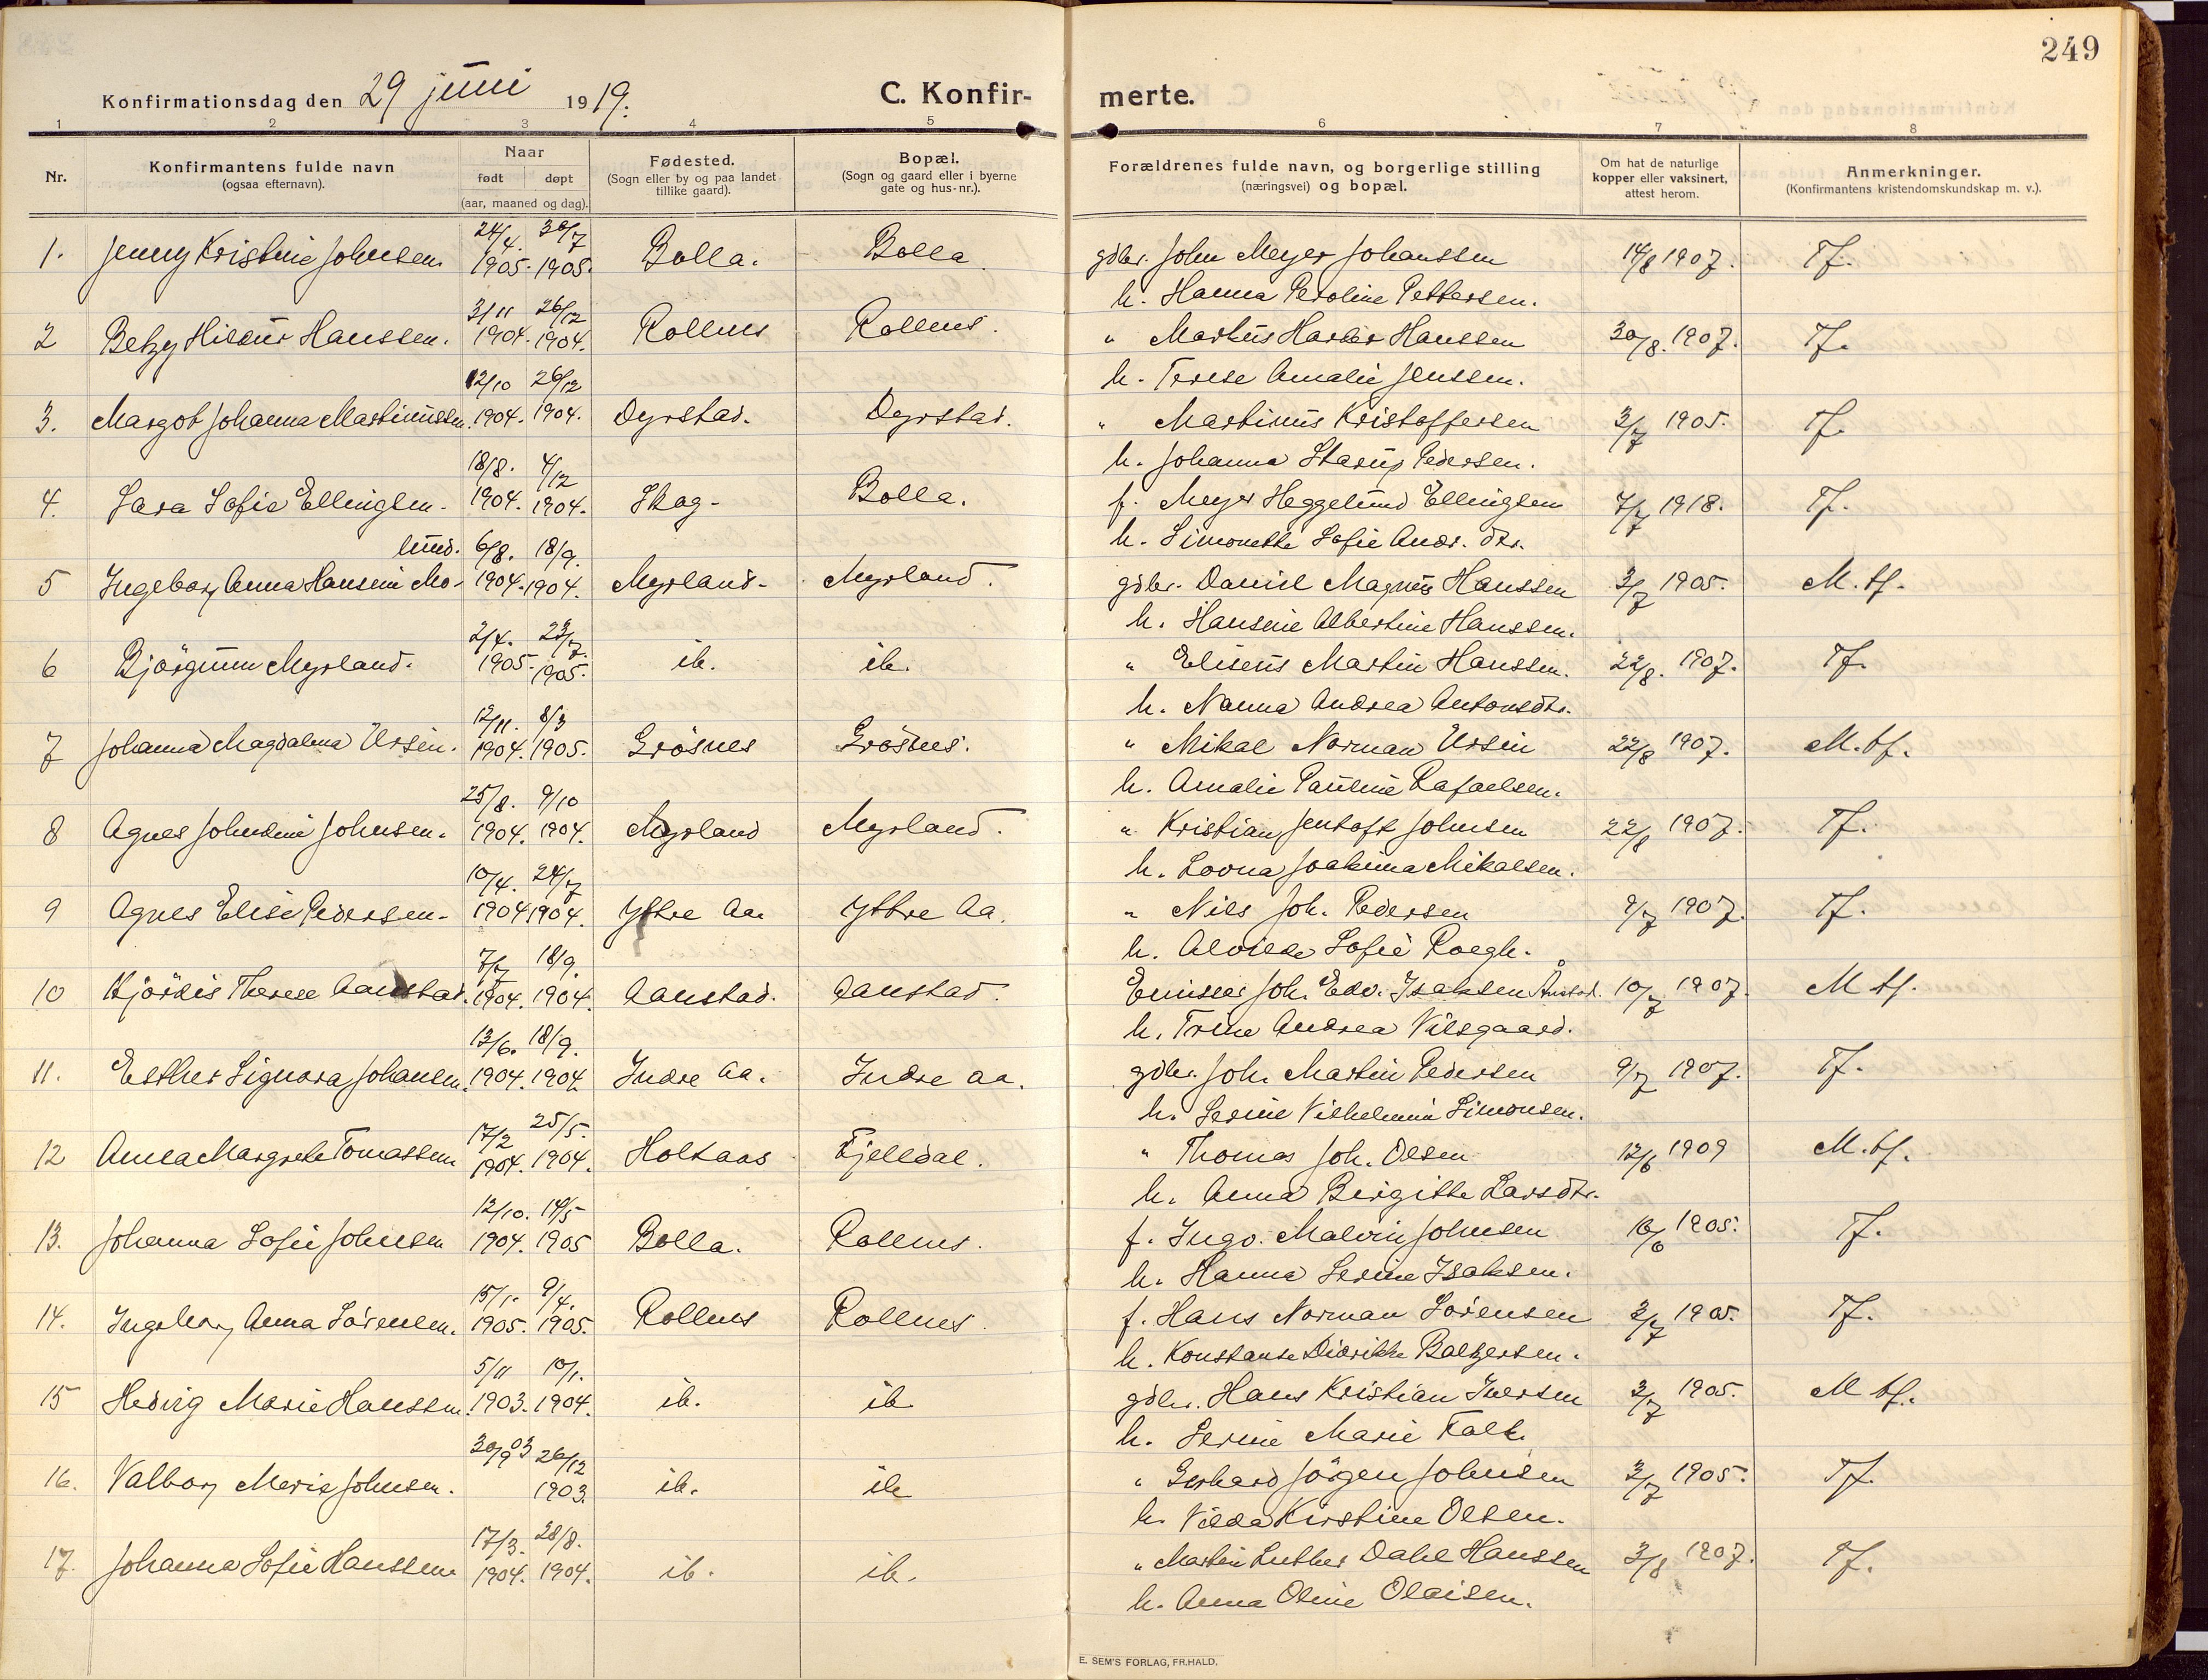 249
Konfirmationsdag den 29 juni 1919.
C. Konfir-
merte.
1 2 3 4 5 6 7 8
Nr.
Konfirmantens fulde navn
(ogsaa efternavn).
Naar
født døpt
(aar, maaned og dag).
Fødested.
(Sogn eller by og paa landet
tillike gaard).
Bopæl.
(Sogn og gaard eller i byerne
gate og hus-nr.).
Forældrenes fulde navn, og borgerlige stilling
(næringsvei) og bopæl.
Om hat de naturlige
kopper eller vaksinert,
attest herom.
Anmerkninger.
(Konfirmantens kristendomskundskap m. v.).
24/4. 30/7
1. Jenny Kristine Johnsen. 1905. 1905. Bolla. Bolla. gdbr. John Meyer Johanssen 14/8 1907. Tf.
h. Hanna Peroline Pettersen.
3/11 26/12
2 Betzy Hildur Hanssen. 1904. 1904. Rollnes Rollnes. " Markus Harder Hanssen 30/8. 1907. Tf.
h. Terese Amalie Jenssen.
12/10 26/12
3. Margot Johanna Martinussen. 1904. 1904. Dyrstad. Dyrstad. " Martinus Kristoffersen 3/7 1905. Tf.
h. Johanna Starup Pedersen.
18/8. 4/12
4. Sara Sofie Ellingsen. 1904. 1904. Skog. Bolla. f. Meyer Heggelund Ellingsen 7/7 1918. Tf.
h. Simonette Sofie Andr. dtr.
lund. 6/8. 18/9.
5 Ingeborg Anna Hansine Mo- 1904. 1904. Myrland. Myrland. gdbr. Daniel Magnus Hanssen 3/7 1905. M. tf.
h. Hansine Albertine Hanssen.
2/4. 23/7.
6 Bjørgunn Myrland. 1905. 1905. ib. ib. " Eliseus Martin Hanssen. 22/8. 1907. Tf.
h. Nanna Andrea Antonsdtr.
12/11. 8/3
7 Johanna Magdalena Ursin. 1904. 1905. Grøsnes Grøsnes. " Mikal Norman Ursin 22/8 1907. M. tf.
h. Amalie Pauline Rafaelsen.
25/8. 9/10
8 Agnes Johndine Johnsen. 1904. 1904. Myrland Myrland. " Kristian Jentoft Johnsen 22/8 1907. Tf.
h. Lovna Joakima Mikalsen.
10/4. 24/7
9 Agnes Elise Pedersen. 1904 1904. Yttre Aa. Yttre Aa. " Nils Joh. Pedersen 9/7 1907. Tf.
h. Alvilde Sofie Roegh.
7/7 18/9.
10 Hjørdis Therese Aanstad. 1904. 1904. Aanstad. Aanstad. Emissær Joh. Edv. Isaksen Ånstad. 10/7 1907. M tf.
h. Trine Andrea Vilsgaard.
13/6. 18/9.
11. Esther Signora Johansen. 1904. 1904. Indre Aa. Indre Aa. gdbr. Joh. Martin Pedersen 9/7 1907. Tf.
h. Serine Vilhelmine Simonsen.
17/2 25/5.
12 Anna Margrete Tomassen 1904. 1904. Holtaas Fjelldal. " Thomas Joh. Olsen 12/6 1909 M. tf.
h. Anna Birgitte Larsdtr.
12/10. 14/5
13. Johanna Sofie Johnsen 1904. 1905 Bolla. Rollnes. f. Ingv. Malvin Johnsen 16/6 1905. Tf.
h. Hanna Serine Isaksen.
15/1. 9/4.
14. Ingeborg Anna Sørensen. 1905. 1905. Rollnes Rollnes. f. Hans Norman Sørensen 3/7 1905. Tf.
h. Konstanse Didrikke Baltzersen.
5/11 10/1.
15 Hedvig Marie Hanssen. 1903. 1904. ib. ib gdbr. Hans Kristian Iversen 3/7 1905. M tf.
h. Serine Marie Falk.
30/9 03 26/12
16. Valborg Marie Johnsen. 1903. ib. ib " Gerhard Jørgen Johnsen 3/7 1905. Tf.
h. Vilda Kirstine Olsen.
17/3. 28/8.
17. Johanna Sofie Hanssen. 1904. 1904. ib. ib. " Martin Luther Dahl Hanssen 3/8 1907. Tf.
h. Anna Oline Olaisen.
E. SEM'S FORLAG, FR.HALD.